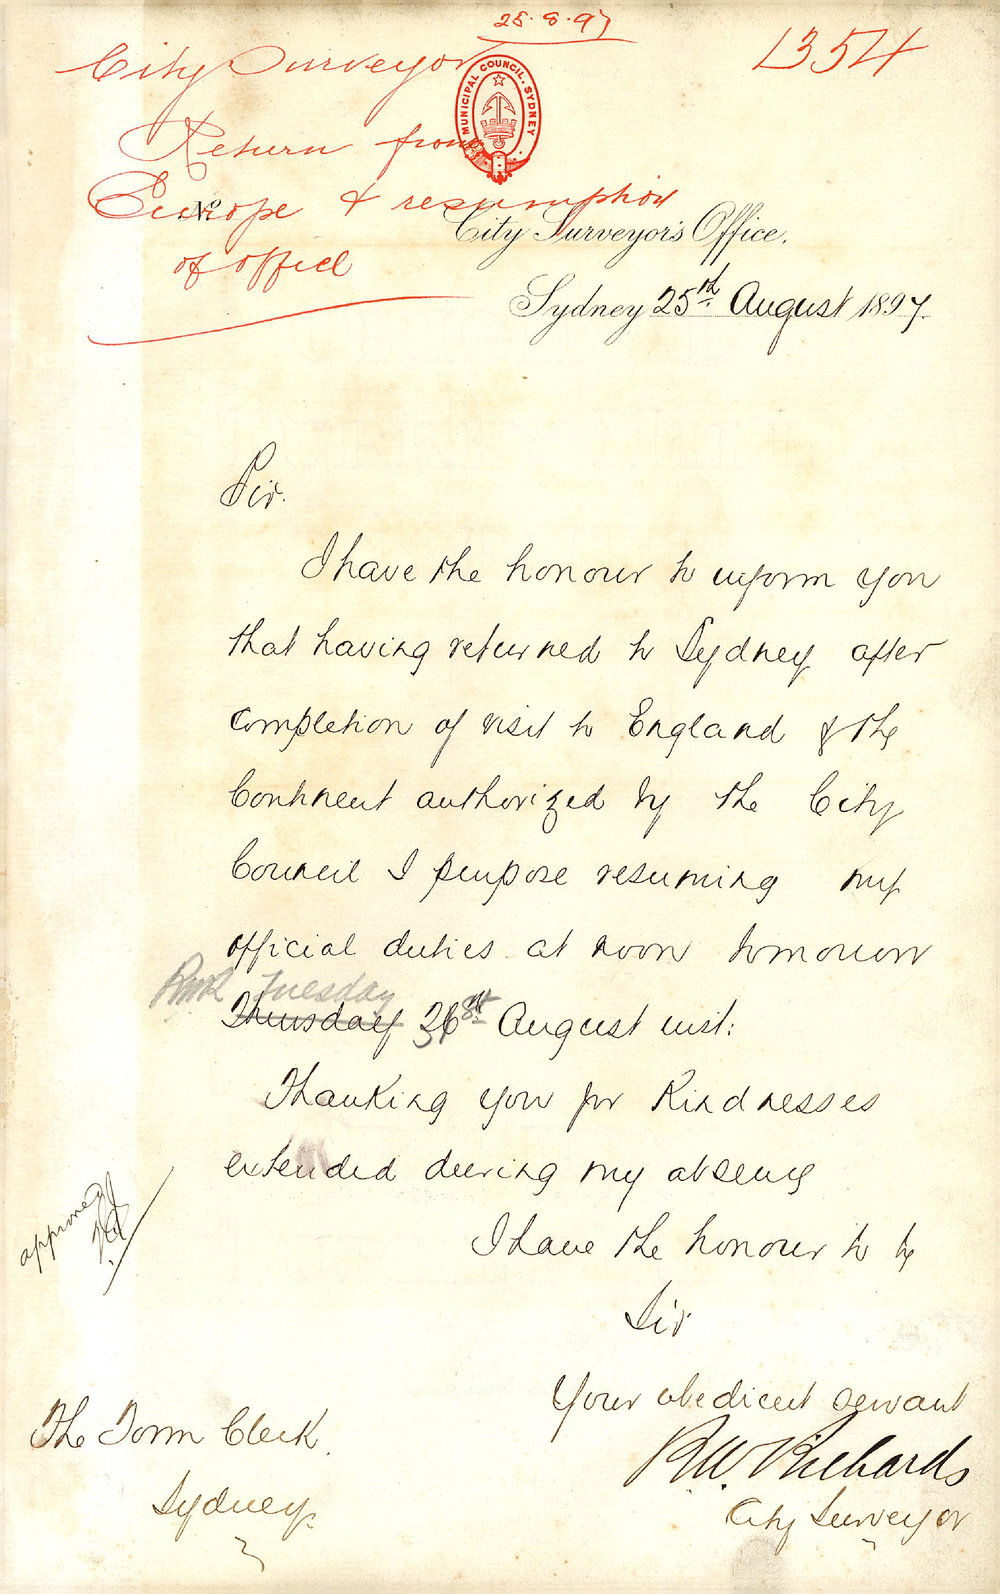 25.8.97
1354
City Surveyor
Return from
Europe & resumption
of office
MUNICIPAL COUNCIL. SYDNEY
No
City Surveyor's Office.
Sydney 25th August 1897.
Sir.
I have the honour to inform you
that having returned to Sydney after
completion of visit to England & the
Continent authorized by the City
Council I purpose resuming my
official duties at noon tomorrow
RWR Tuesday
Thursday August inst:
Thanking you for kindnesses
extended during my absence
I have the honour to be
Sir
Your obedient servant
R.W. Richards
City Surveyor
approved
The Town Clerk.
Sydney.